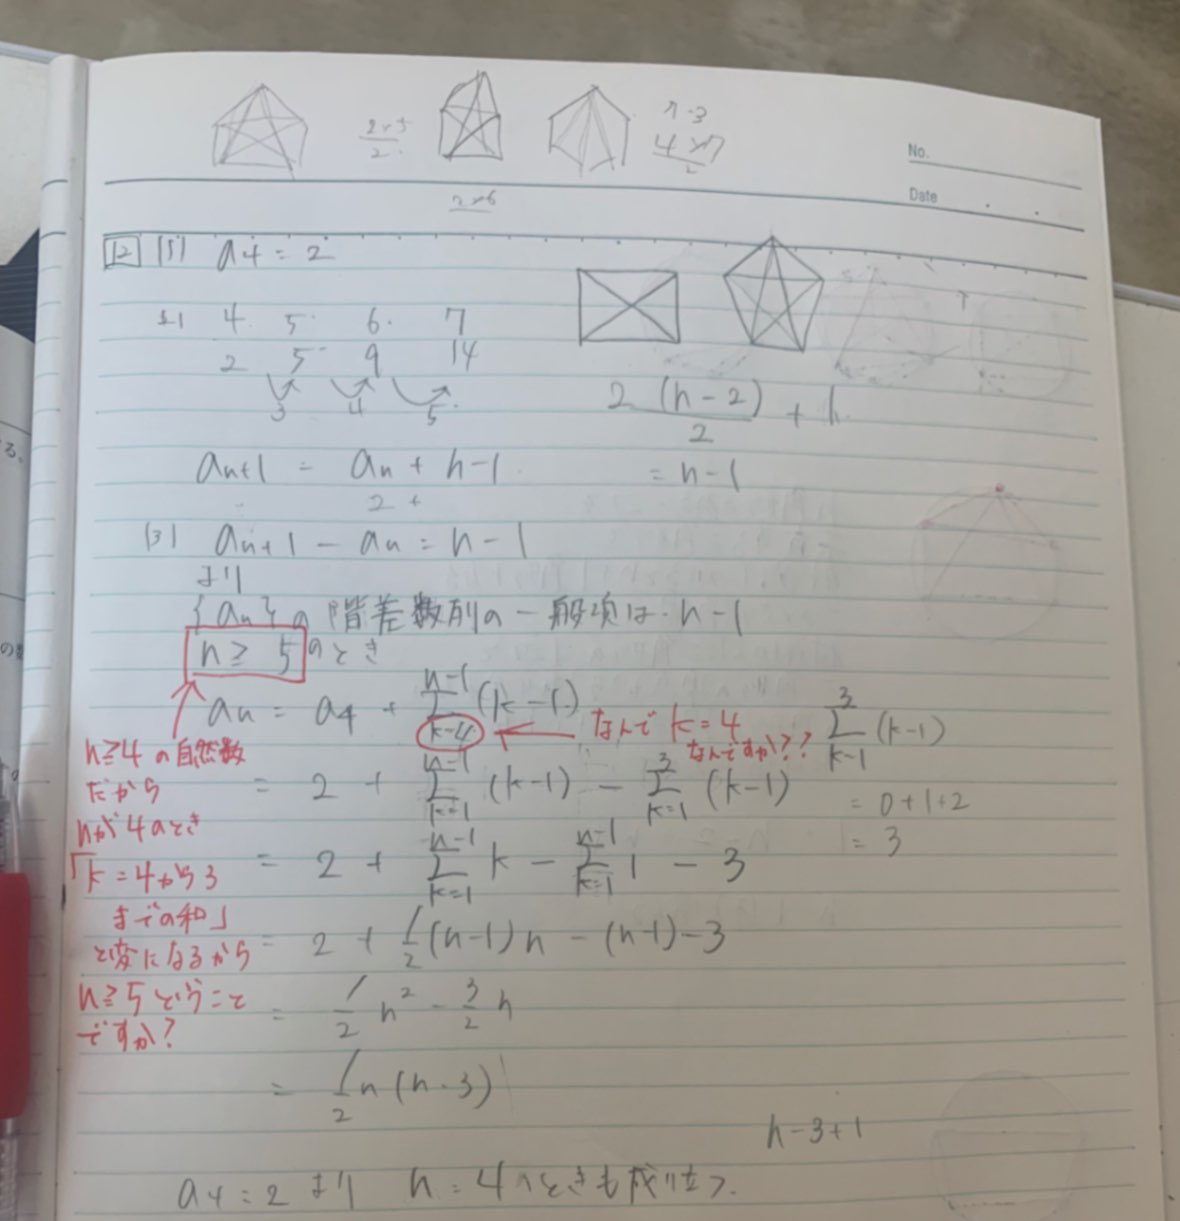 2×5
2
2×6
n-3
4×7
2
No.
Date
12 (5) a4 = 2
4. 5 6. 7
2 5 9 14
3 4 5
2(n-2)
2
+ 1
an+1 = an + n-1
= n-1
2 +
(3) an+1 - an = n-1
より
{an}の階差数列の一般項は n-1
n≧5のとき
an = a4 + Σ[k=4, n-1](k-1)
なんで k=4
なんですか??
Σ[k=1, 3](k-1)
= 0+1+2
= 3
= 2 + Σ[k=1, n-1](k-1) - Σ[k=1, 3](k-1)
= 2 + Σ[k=1, n-1]k - Σ[k=1, n-1]1 - 3
= 2 + 1/2(n-1)n - (n-1)-3
= 1/2 n² - 3/2 n
= 1/2 n(n-3)
n≧4の自然数
だから
nが4のとき
「k=4から3
までの和」
と変になるから
n≧5ということ
ですか?
n-3+1
a4=2より n=4のときも成り立つ.
る。
の